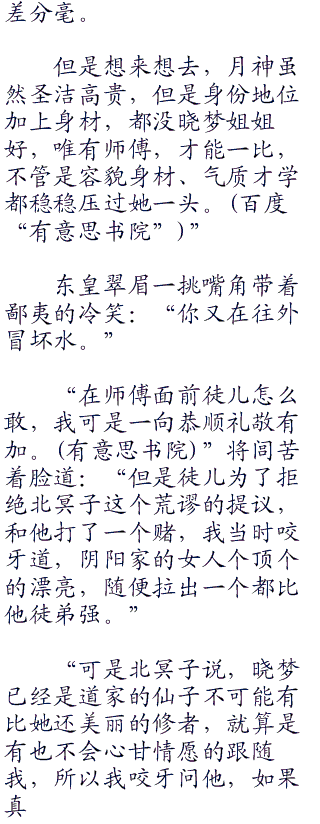 差分毫。
但是想来想去，月神虽
然圣洁高贵，但是身份地位
加上身材，都没晓梦姐姐
好，唯有师傅，才能一比，
不管是容貌身材、气质才学
都稳稳压过她一头。(百度
“有意思书院”)”
东皇翠眉一挑嘴角带着
鄙夷的冷笑：“你又在往外
冒坏水。”
“在师傅面前徒儿怎么
敢，我可是一向恭顺礼敬有
加。(有意思书院)”将闾苦
着脸道：“但是徒儿为了拒
绝北冥子这个荒谬的提议，
和他打了一个赌，我当时咬
牙道，阴阳家的女人个顶个
的漂亮，随便拉出一个都比
他徒弟强。”
“可是北冥子说，晓梦
已经是道家的仙子不可能有
比她还美丽的修者，就算是
有也不会心甘情愿的跟随
我，所以我咬牙问他，如果
真